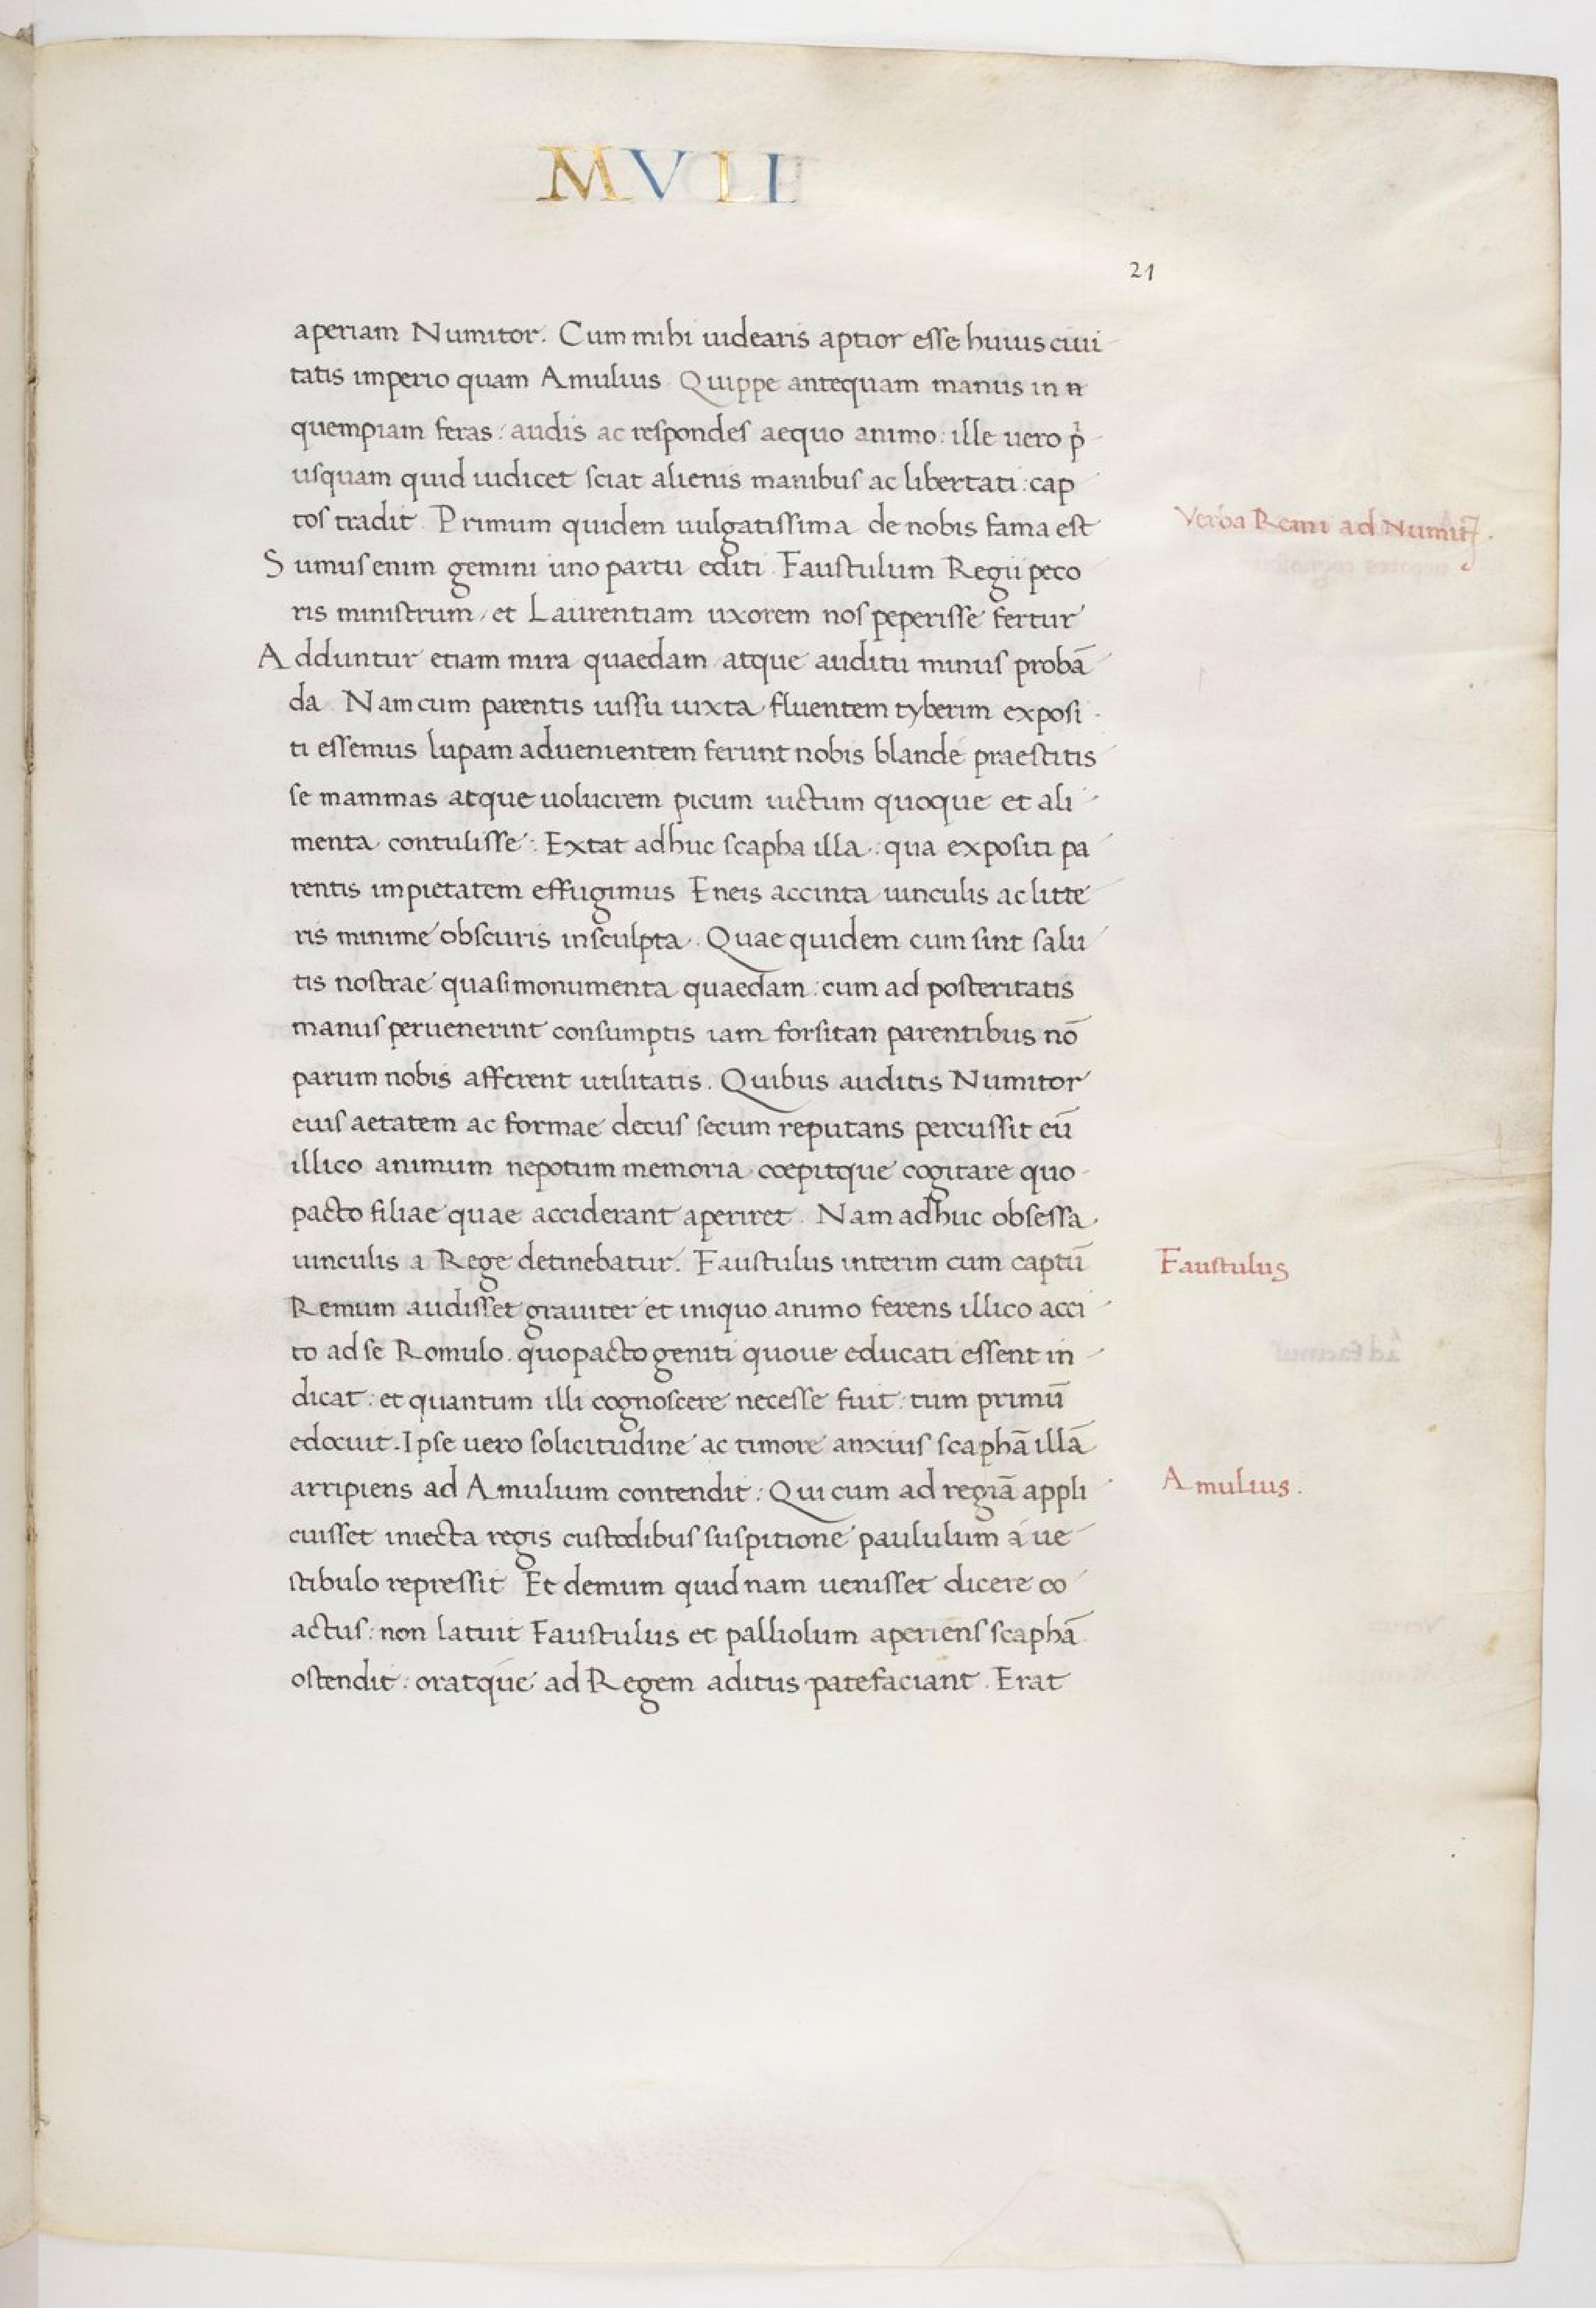 MVLI
21
aperiam Numitor. Cum mihi uidearis aptior esse huius ciui
tatis imperio quam Amulius Quippe antequam manus in n
quempiam feras: audis ac respondes aequo animo: ille uero p̍
usquam quid iudicet sciat alienis manibus ac libertati: cap
tos tradit Primum quidem uulgatissima de nobis fama est
Verba Remi ad Numit
Sumus enim gemini uno partu editi Faustulum Regii peco
ris ministrum, et Laurentiam uxorem nos peperisse fertur
Adduntur etiam mira quaedam atque auditu minus probā
da Nam cum parentis iussu iuxta fluentem tyberim exposi
ti essemus lupam aduenientem ferunt nobis blande praestitis
se mammas atque uolucrem picum uictum quoque et ali
menta contulisse: Extat adhuc scapha illa: qua expositi pa
rentis impietatem effugimus Eneis accinta uinculis ac litte
ris minime obscuris insculpta. Quae quidem cum sint salu
tis nostrae quasi monumenta quaedam: cum ad posteritatis
manus peruenerint consumptis iam forsitan parentibus nō
parum nobis afferent utilitatis. Quibus auditis Numitor
eius aetatem ac formae decus secum reputans percussit eū
illico animum nepotum memoria coepitque cogitare quo
pacto filiae quae acciderant aperiret. Nam adhuc obsessa
uinculis a Rege detinebatur. Faustulus interim cum captū
Faustulus
Remum audisset grauiter et iniquo animo ferens illico acci
to ad se Romulo. quo pacto geniti quoue educati essent in
dicat: et quantum illi cognoscere necesse fuit: tum primū
edocuit. Ipse uero solicitudine ac timore anxius scaphā illā
arripiens ad Amulium contendit: Qui cum ad regiā appli
Amulius.
cuisset iniecta regis custodibus suspitione paululum á ue
stibulo repressit Et demum quid nam uenisset dicere co
actus: non latuit Faustulus et palliolum aperiens scaphā
ostendit: oratque ad Regem aditus patefaciant. Erat